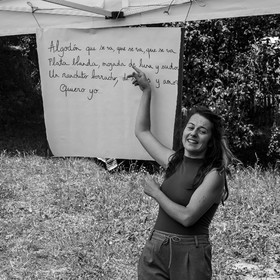 Algodón que se va, que se va, que se va
Plata blanda, mojada de luna y sudor.
Un ranchito borracho, de y amor
Quiero yo